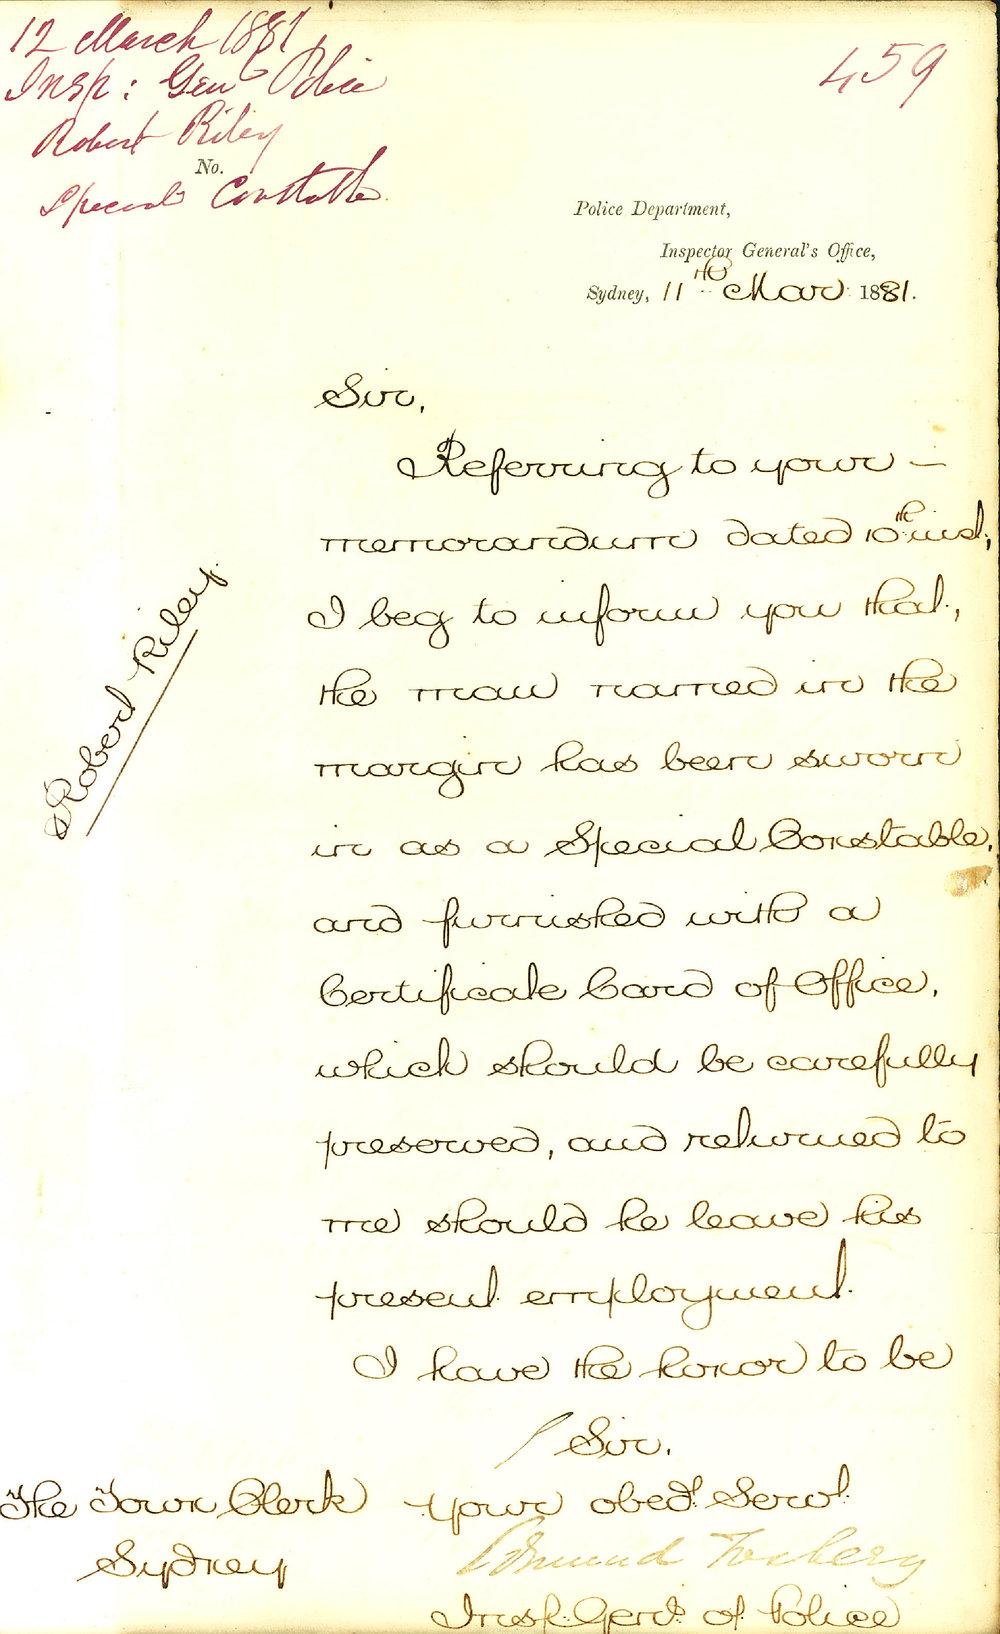 12 March 1881
Insp: Genl Police
Robert Riley
No.
Special Constable
459
Police Department,
Inspector General's Office,
Sydney, 11th Mar 1881.
Sir,
Referring to your –
memorandum dated 10th inst,
I beg to inform you that,
the man named in the
margin has been sworn
in as a Special Constable,
and furnished with a
Certificate Card of Office,
which should be carefully
preserved, and returned to
me should he leave his
present employment.
Robert Riley.
I have the honor to be
Sir.
your obedt Servt
Edmund Fosbery
Insp. Genl. of Police
The Town Clerk
Sydney